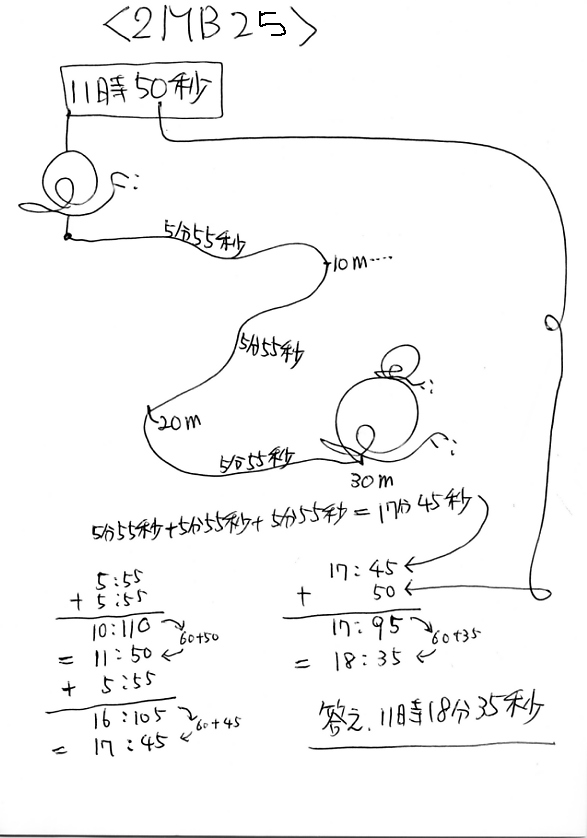 <2MB25>
11時50秒
5分55秒
10m....
5分55秒
20m
5分55秒
30m
5分55秒+5分55秒+5分55秒=17分45秒
5:55
+ 5:55
10:110
60+50
= 11:50
+ 5:55
16:105
60+45
= 17:45
17:45
+ 50
17:95
60+35
= 18:35
答え、11時18分35秒